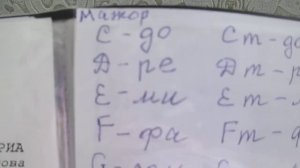 Мажор
C - до Cm - до
D - ре Dm - р
E - ми Em -
F - фа Fm -
РИА
ова